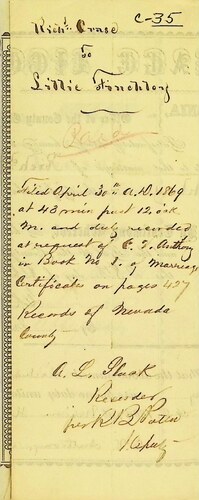 C-35
Rich. Crase
To
Lillie Finchley
Filed April 30th A.D. 1869
at 43 min past 12. o'ck
M. and duly recorded
at request of C. T. Anthony
in Book No 1. of Marriage
Certificates on pages 427
Records of Nevada
County
A. L.
Recorder
per K B
Deputy